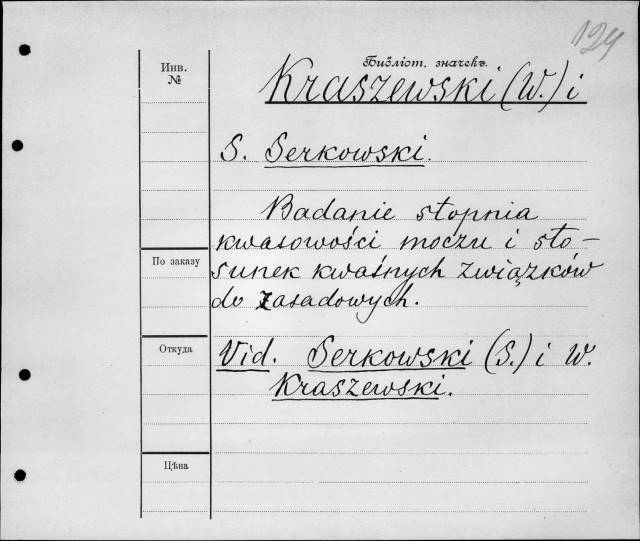 124
Инв.
№
Библіот. значекъ.
Kraszewski (W.) i
S. Serkowski.
Badanie stopnia
kwasowości moczu i sto-
sunek kwaśnych związków
do zasadowych.
По заказу
Откуда
Vid. Serkowski (S.) i W.
Kraszewski.
Цѣна